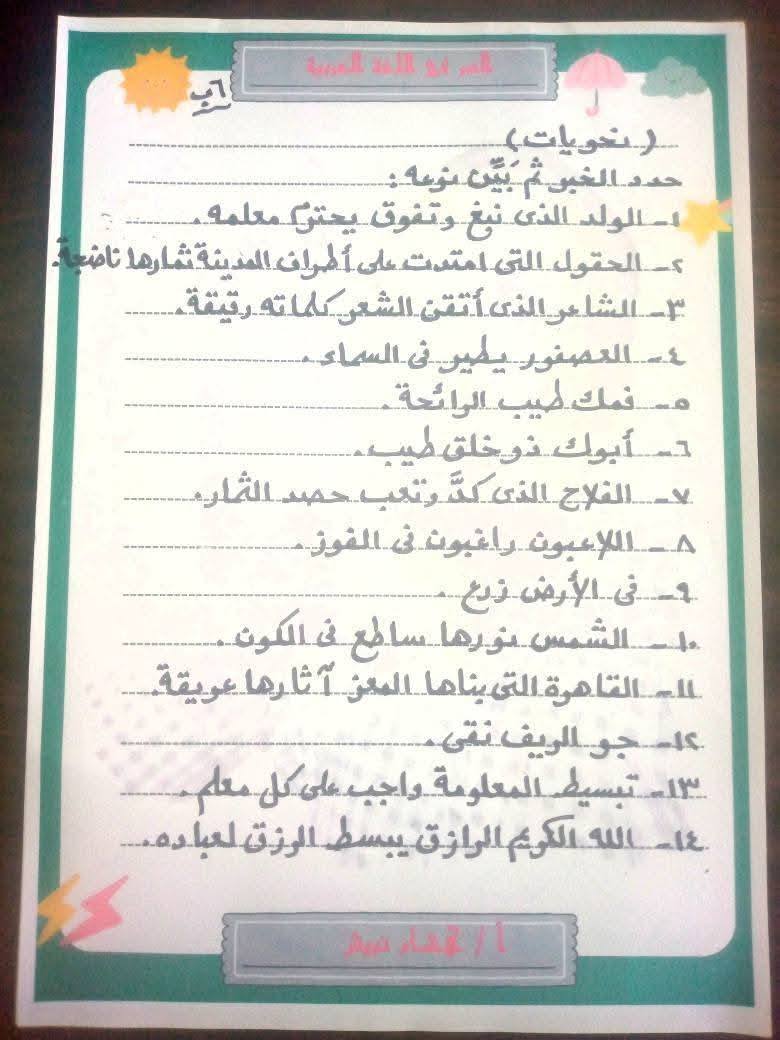 السر في اللغة العربية
٦ب
(نحويات)
حدد الخبر ثم بَيِّن نوعه:
١- الولد الذى نبغ وتفوق يحترم معلمه.
٢- الحقول التى امتدت على أطراف المدينة ثمارها ناضجة.
٣- الشاعر الذى أتقن الشعر كلماته رقيقة.
٤- العصفور يطير فى السماء.
٥- فمك طيب الرائحة.
٦- أبوك ذو خلق طيب.
٧- الفلاح الذى كدَّ وتعب حصد الثمار.
٨- اللاعبون راغبون فى الفوز.
٩- فى الأرض زرع.
١٠- الشمس نورها ساطع فى الكون.
١١- القاهرة التى بناها المعز آثارها عريقة.
١٢- جو الريف نقى.
١٣- تبسيط المعلومة واجب على كل معلم.
١٤- الله الكريم الرازق يبسط الرزق لعباده.
أ /